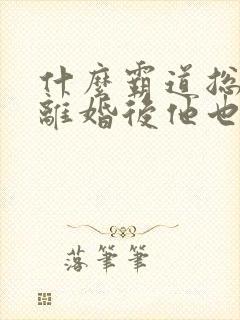 什麼霸道總
離婚後他也
落筆筆